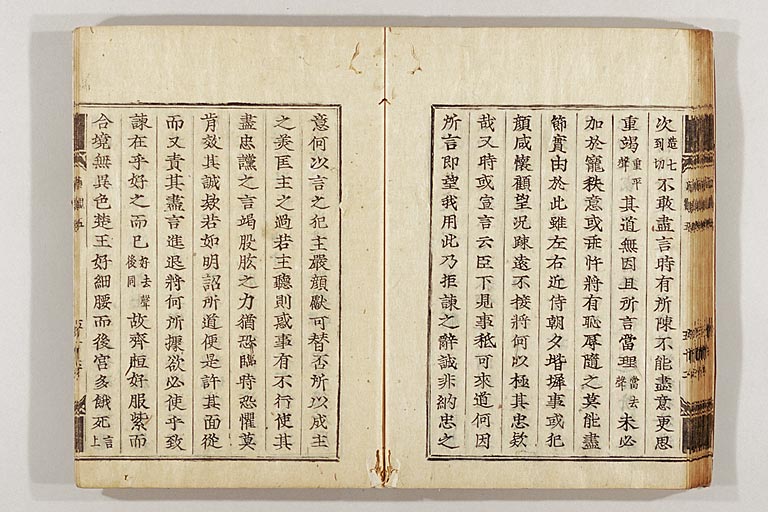 次造七到切不敢盡言時有所陳不能盡意更思
重竭重平聲其道無因且所言當理當去聲未必
加於寵秩意或乖忤將有恥辱隨之莫能盡
節實由於此雖左右近侍朝夕堦墀事或犯
顔咸懷顧望況疎遠不接將何以極其忠欵
哉又時或宣言云臣下見事秪可來道何因
所言即望我用此乃拒諫之辭誠非納忠之
意何以言之犯主嚴顔獻可替否所以成主
之美匡主之過若主聽則惑事有不行使其
盡忠讜之言竭股肱之力猶恐臨時恐懼莫
肯效其誠欵若如明詔所道便是許其面從
而又責其盡言進退將何所據欲必使乎致
諫在乎好之而已好去聲後同故齊桓好服紫而
合境無異色楚王好細腰而後宮多餓死言上